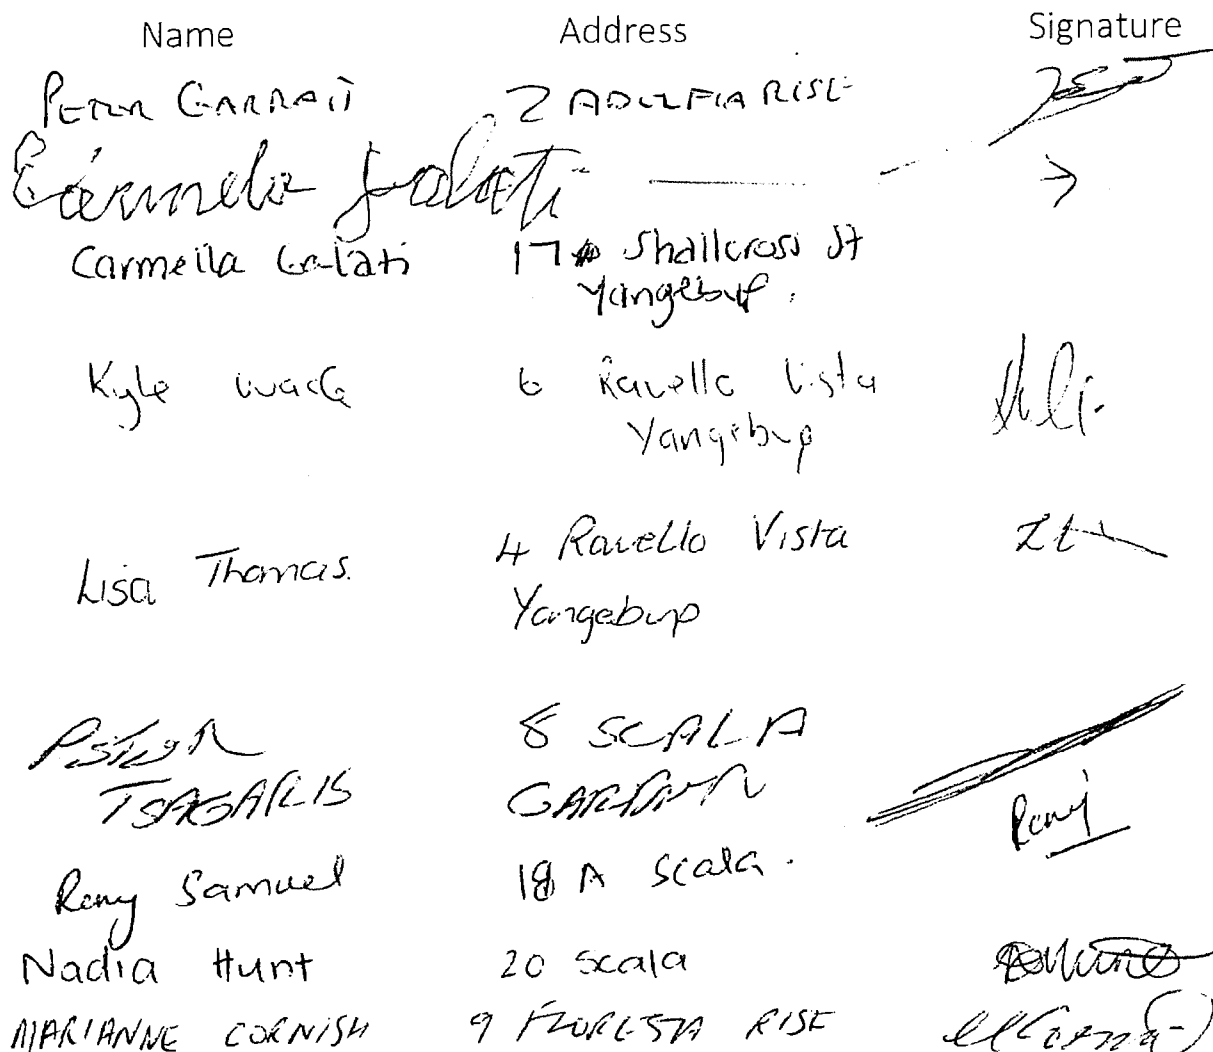 Name Address Signature
PETER GARRATT 2 ADELFIA RISE
Carmela Galati
Carmella Galati 17 Shallcross St
Yangebup.
Kyle Wade 6 Ravello Vista
Yangebup
Lisa Thomas. 4 Ravello Vista
Yangebup
8 SCALA
TSAGARIS GARDEN
Remy
Remy Samuel 18 A Scala.
Nadia Hunt 20 Scala
MARIANNE CORNISH 9 FLORESTA RISE